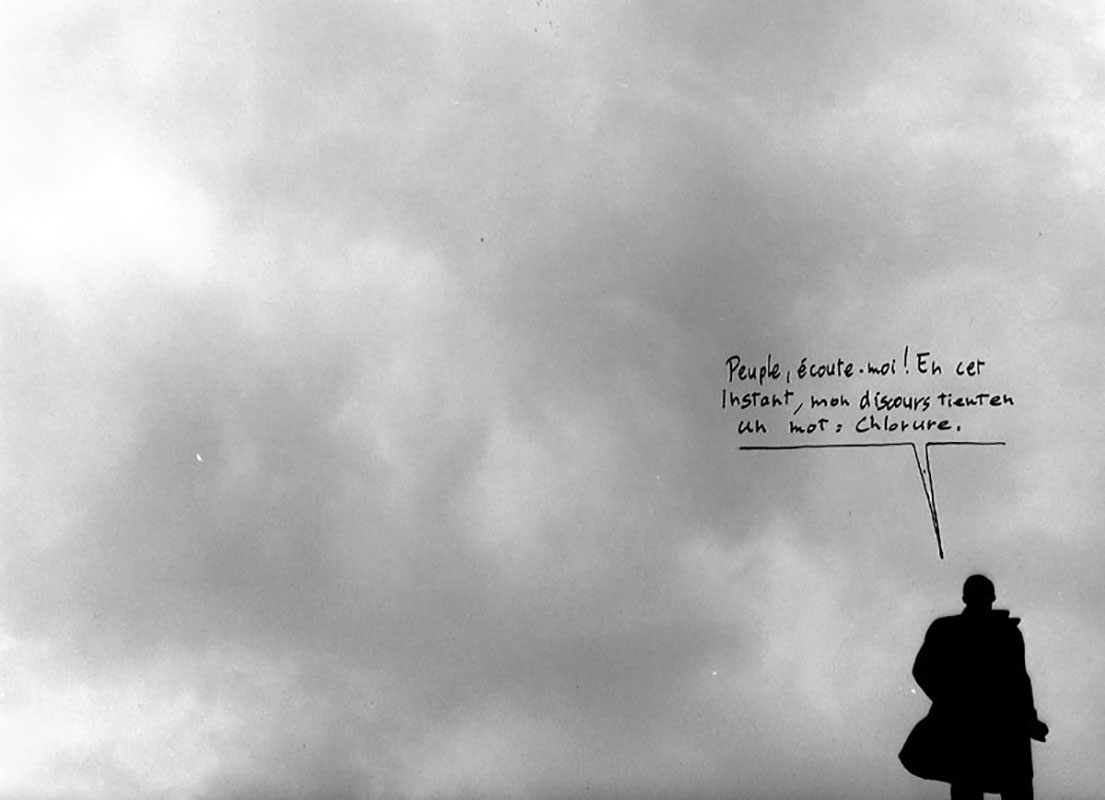 Peuple, écoute-moi! En cet
Instant, mon discours tient en
un mot: Chlorure.